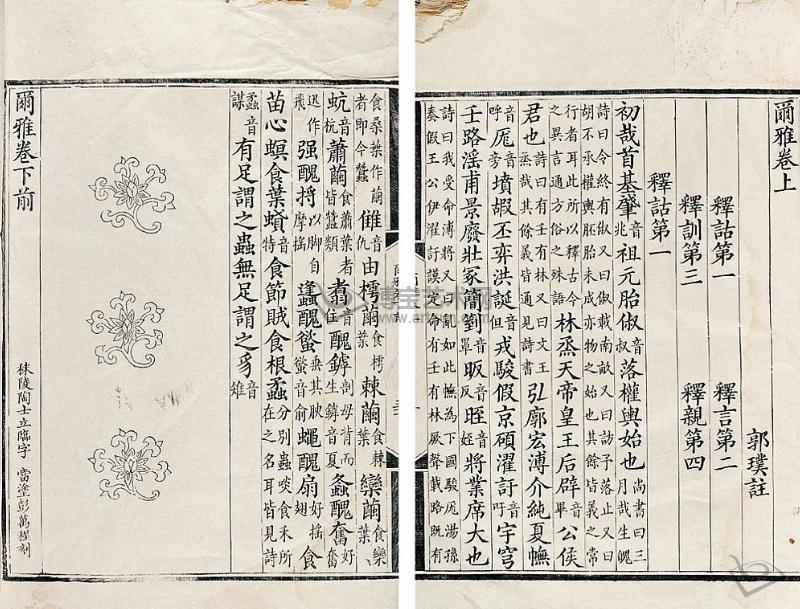 爾雅卷上
郭璞註
釋詁第一 釋言第二
釋訓第三 釋親第四
釋詁第一
初哉首基肇音兆祖元胎俶音叔落權輿始也尚書曰三月哉生魄
詩曰令終有俶又曰俶載南畝又曰訪予落止又曰
胡不承權輿胚胎未成亦物之始也其餘皆義之常
行者耳此所以釋古今之異言通方俗之殊語林烝天帝皇王后辟音畢公侯
君也詩曰有壬有林又曰文王烝哉其餘義皆通見詩書弘廓宏溥介純夏幠
音呼厖音旁墳嘏丕弈洪誕音但戎駿假京碩濯訏音吁宇穹
壬路淫甫景廢壯冢簡菿音罩昄音反晊音姪將業席大也
詩曰我受命溥將又曰亂如此幠為下國駿厖湯孫
奏假王公伊濯訏謨定命有壬有林厥聲載路既有
食桑葉作繭者即今蠶雔音仇由樗繭食樗葉棘繭食棘葉欒繭食欒葉
蚢音杭蕭繭食蕭葉者皆蠶類翥音住醜罅剖母背而生罅音夏螽醜奮好奮
迅作飛强醜捋以脚自摩捋蠭醜螸垂其腴螸音俞蠅醜扇好搖翅食
苗心螟食葉蟘音特食節賊食根蟊分別蟲啖食禾所在之名耳皆見詩
蟊音謀有足謂之蟲無足謂之豸音雉
爾雅卷下前
秣陵陶士立臨字 當塗彭萬程刻
博宝艺术网